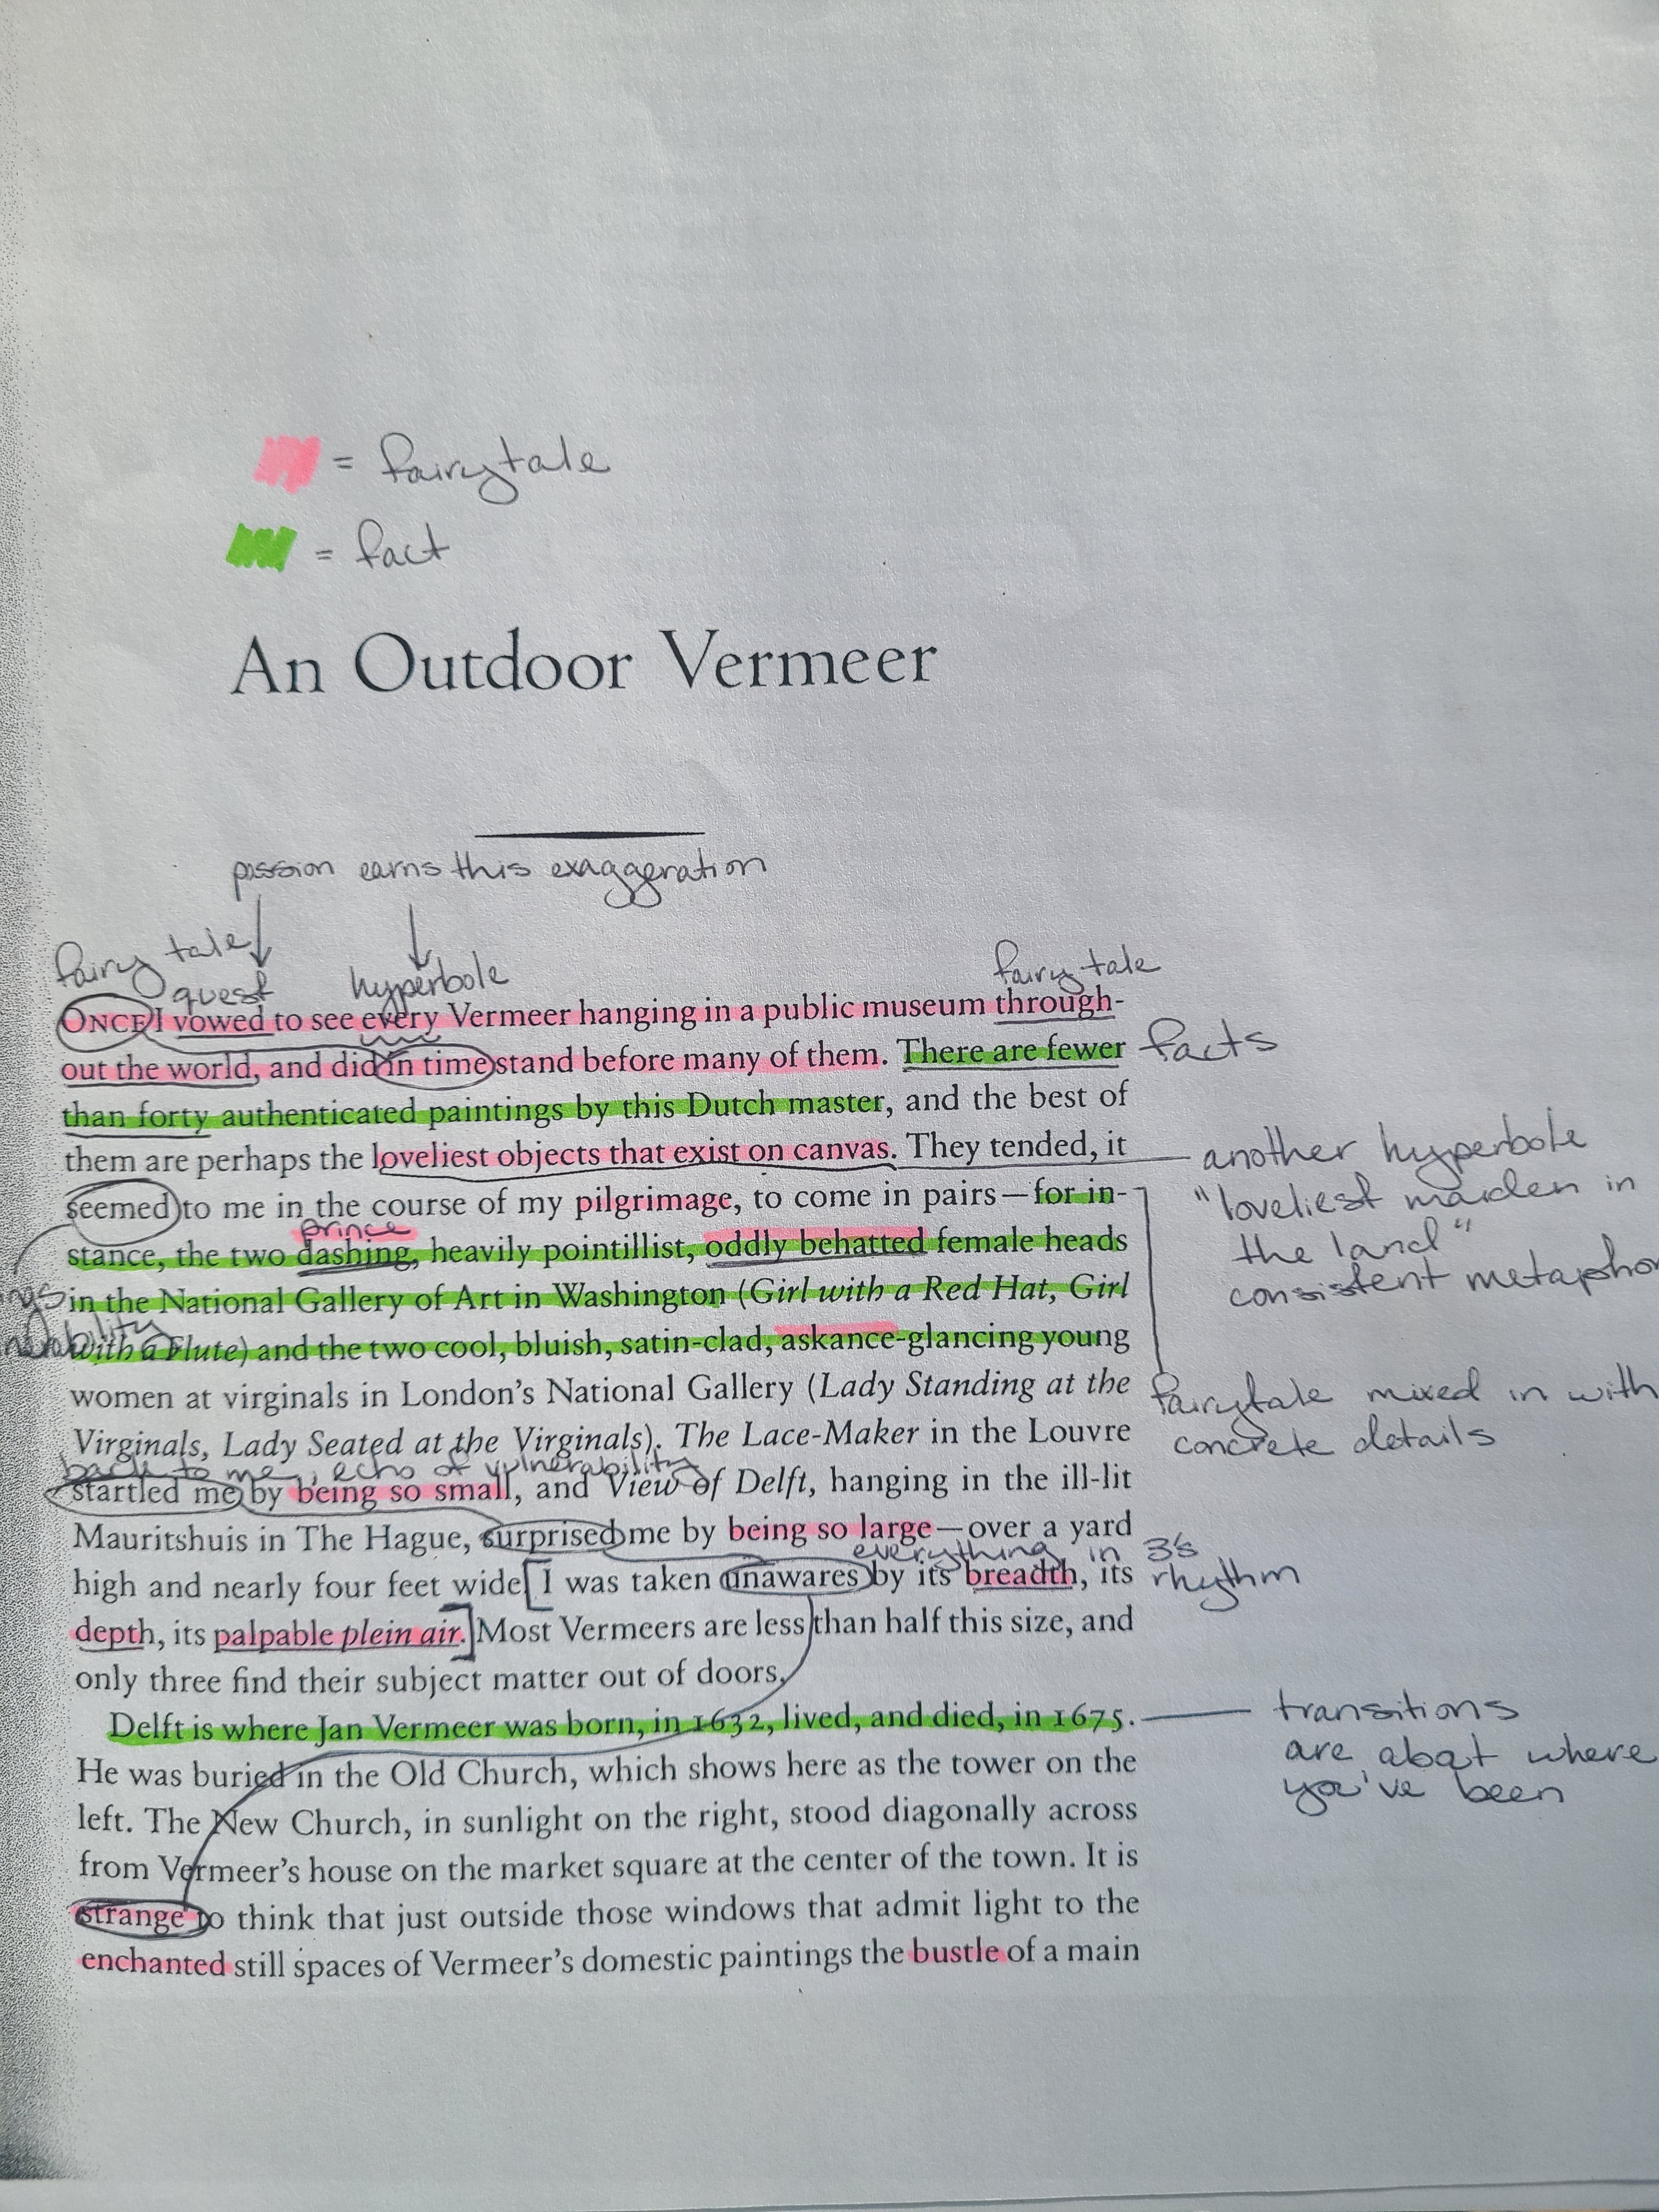 = fairytale
= fact
An Outdoor Vermeer
passion earns this exaggeration
fairy tale
quest
hyperbole
fairy tale
ONCE I vowed to see every Vermeer hanging in a public museum through-
out the world, and did in time stand before many of them. There are fewer
facts
than forty authenticated paintings by this Dutch master, and the best of
them are perhaps the loveliest objects that exist on canvas. They tended, it
another hyperbole
"loveliest maiden in
the land"
consistent metaphor
seemed to me in the course of my pilgrimage, to come in pairs—for in-
prince
stance, the two dashing, heavily pointillist, oddly behatted female heads
in the National Gallery of Art in Washington (Girl with a Red Hat, Girl
with a Flute) and the two cool, bluish, satin-clad, askance-glancing young
women at virginals in London's National Gallery (Lady Standing at the
fairytale mixed in with
concrete details
Virginals, Lady Seated at the Virginals). The Lace-Maker in the Louvre
back to me, echo of vulnerability
startled me by being so small, and View of Delft, hanging in the ill-lit
Mauritshuis in The Hague, surprised me by being so large—over a yard
everything in 3's
rhythm
high and nearly four feet wide. I was taken unawares by its breadth, its
depth, its palpable plein air. Most Vermeers are less than half this size, and
only three find their subject matter out of doors.
Delft is where Jan Vermeer was born, in 1632, lived, and died, in 1675.
transitions
are about where
you've been
He was buried in the Old Church, which shows here as the tower on the
left. The New Church, in sunlight on the right, stood diagonally across
from Vermeer's house on the market square at the center of the town. It is
strange to think that just outside those windows that admit light to the
enchanted still spaces of Vermeer's domestic paintings the bustle of a main